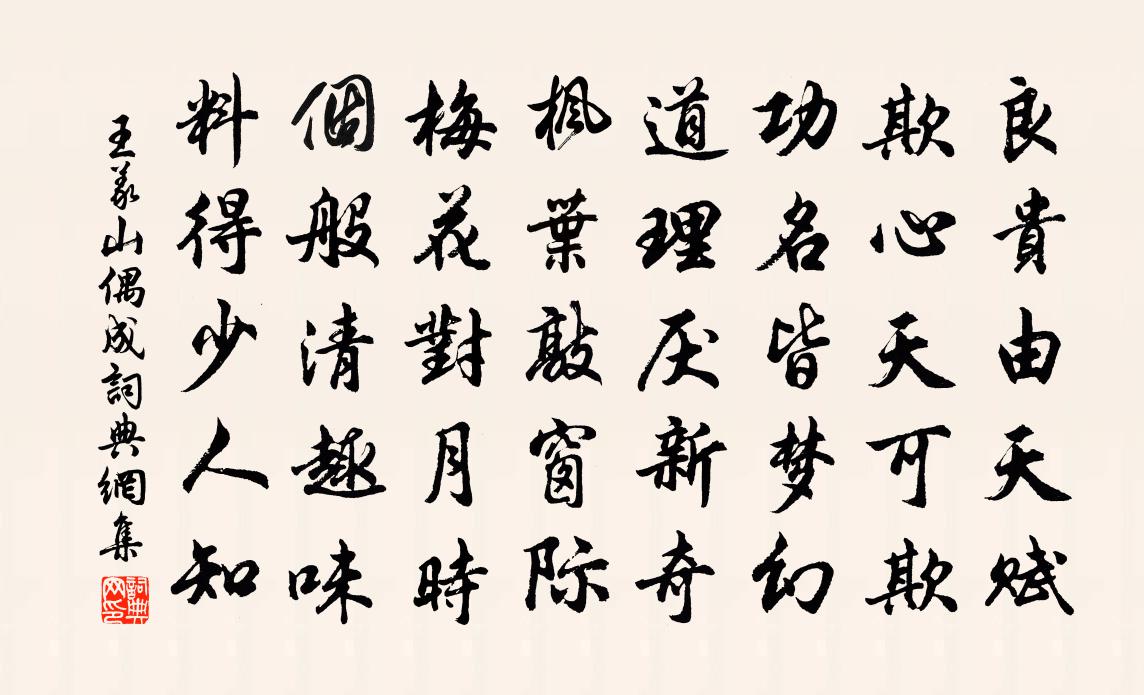 良貴由天赋
欺心天可欺
功名皆梦幻
道理厌新奇
枫葉敲窗际
梅花對月時
個般清趣味
料得少人知
王義山偶成詞典網集
詞典网印